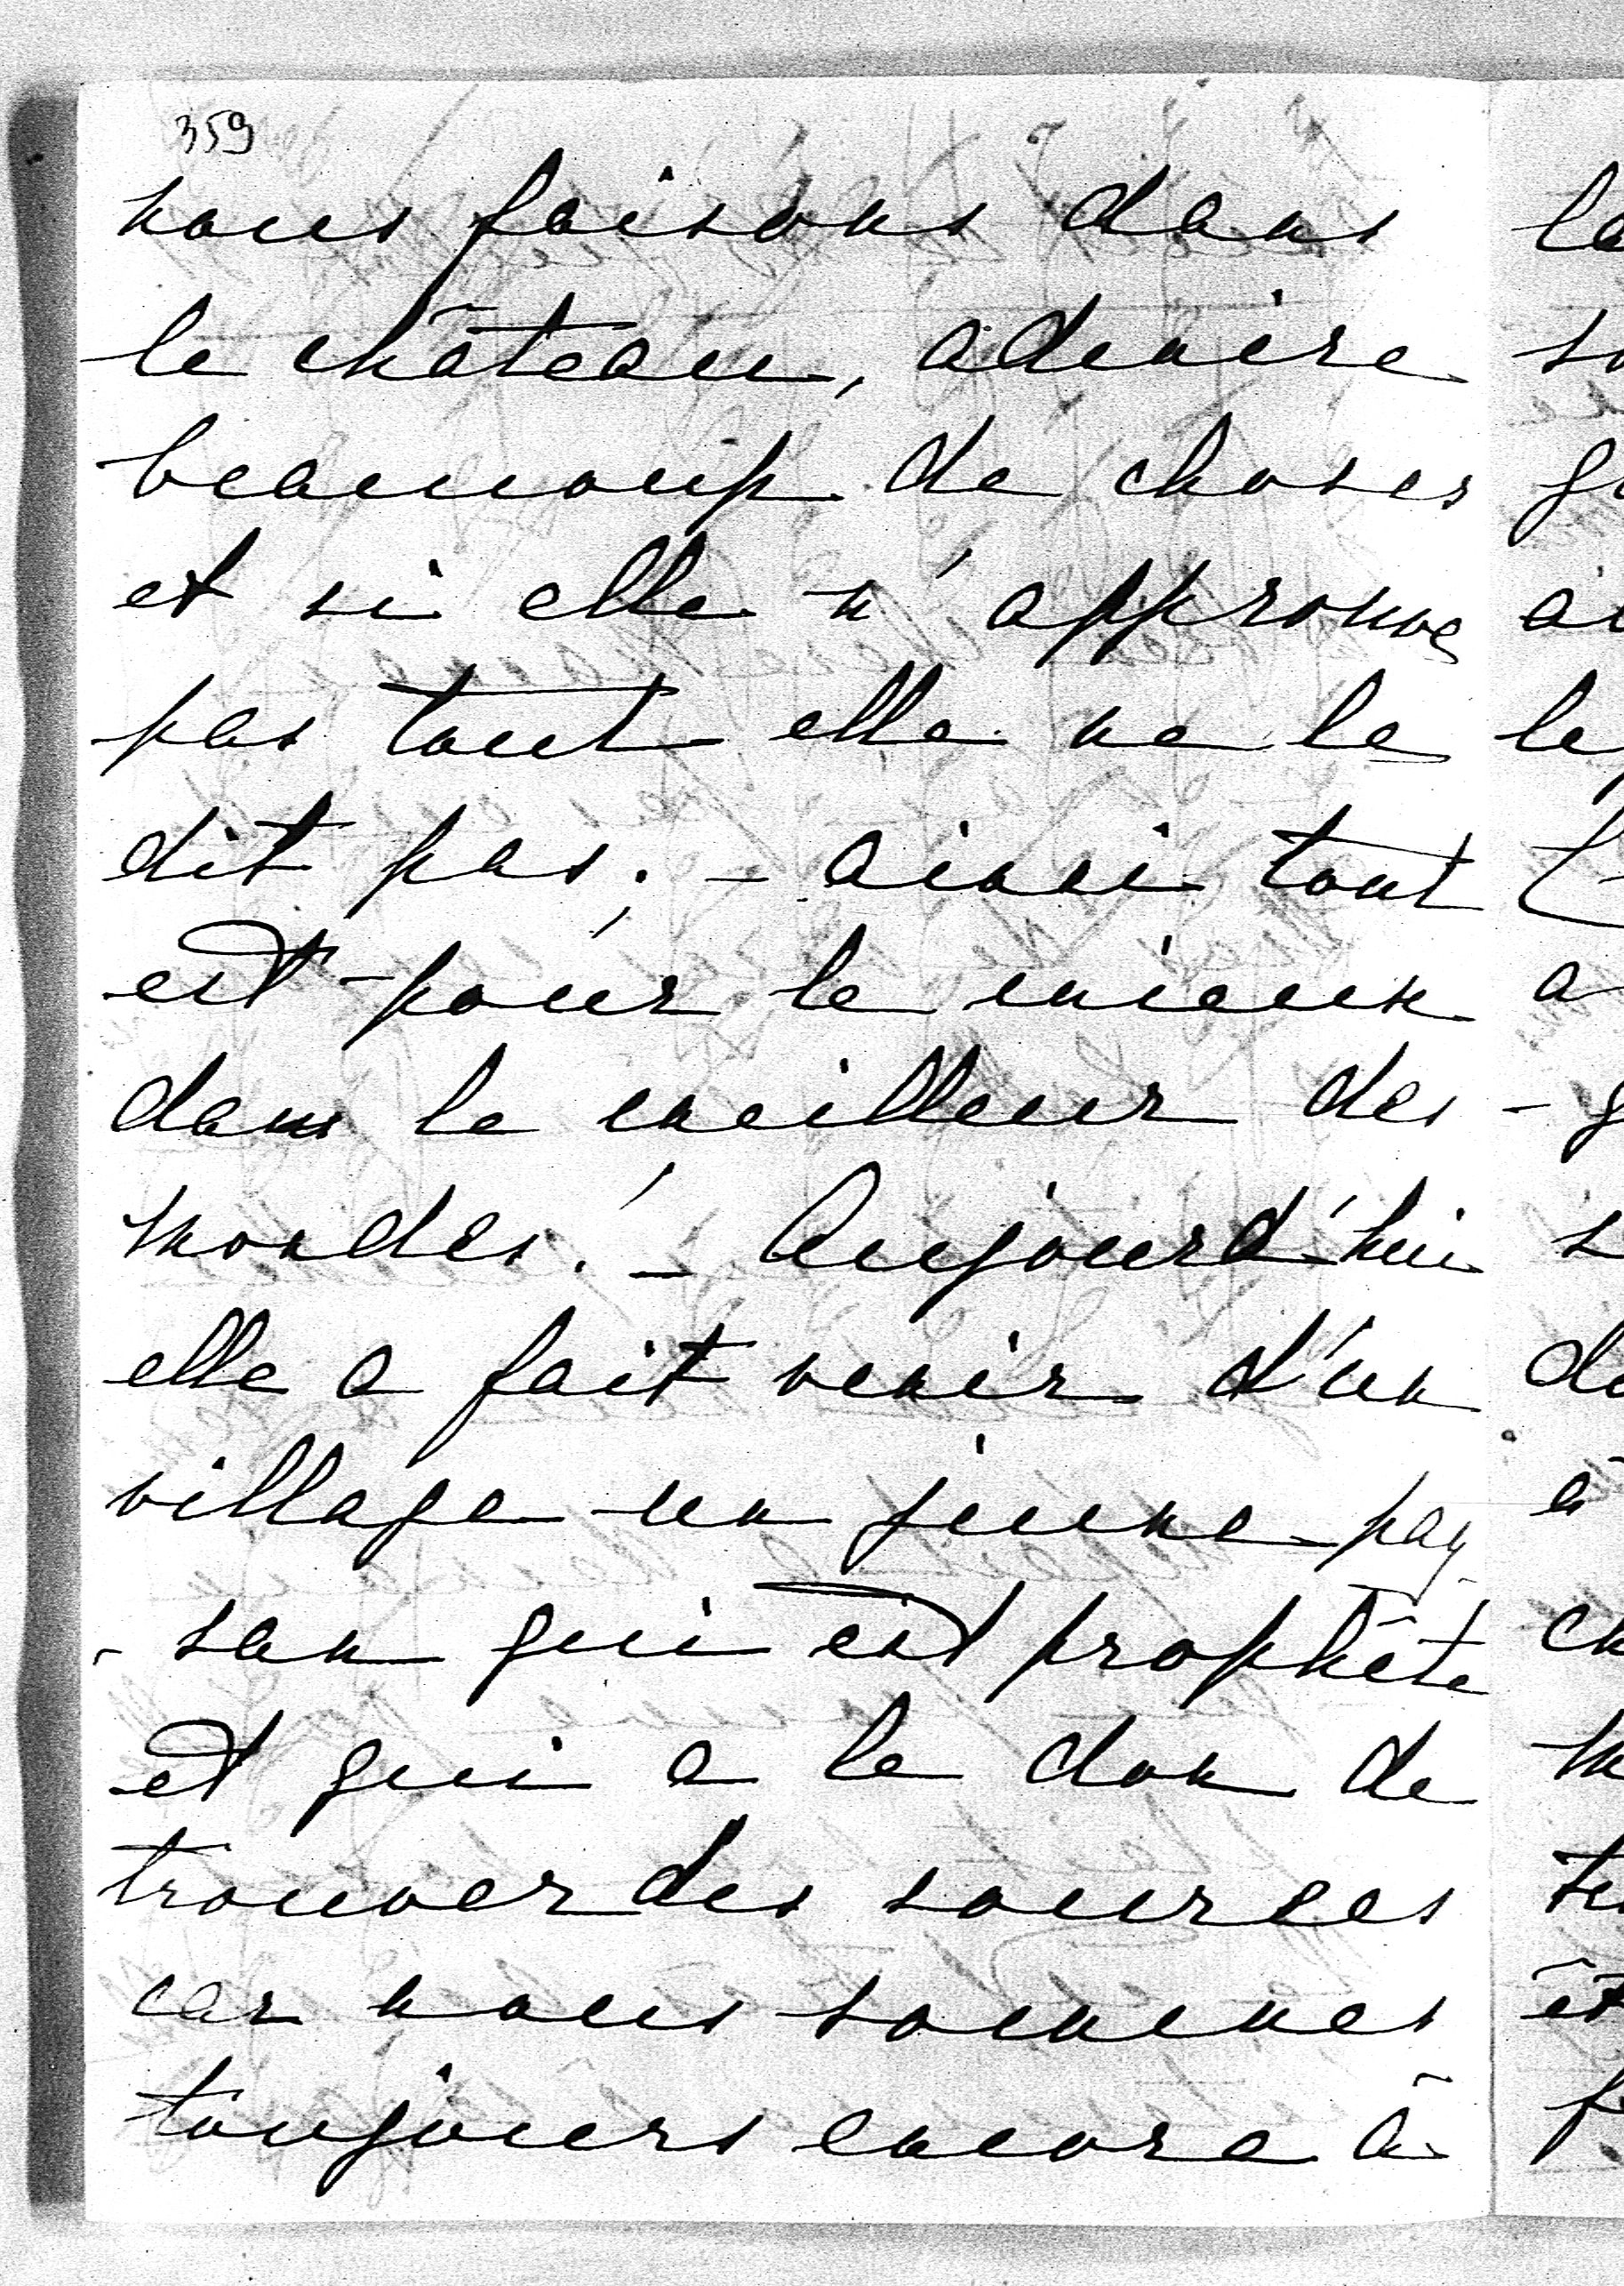 359
nous faisons dans
le château, admire
beaucoup de choses
et si elle n'approuve
pas tout elle ne le
dit pas; - ainsi tout
est pour le mieux
dans le meilleur des
mondes! - Aujourd'hui
elle a fait venir d'un
village un jeune pay-
-san qui est prophête
et qui a le don de
trouver des sources
car nous sommes
toujours encore à